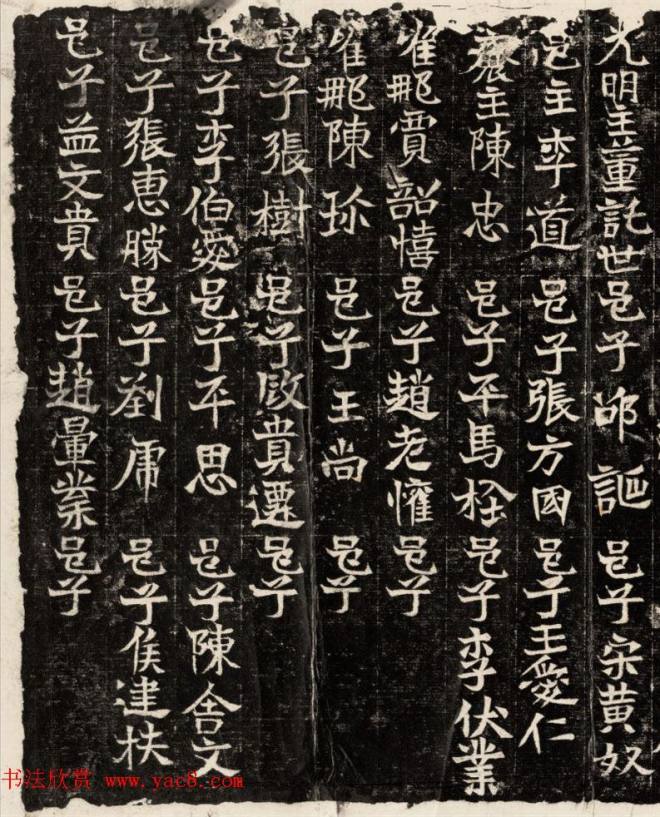 光明主董託世邑子邰訑邑子宋黄奴
邑主李道邑子張方国邑子王愛仁
齋主陳忠邑子平馬柱邑子李伏業
唯那賈韶憘邑子趙老懽邑子
唯那陳珎邑子王尚邑子
邑子張樹邑子殴貴遷邑子
邑子李伯愛邑子平思邑子陳舍文
邑子張惠勝邑子劉席邑子侯建扶
邑子益文貴邑子趙暈業邑子
书法欣赏 www.yac8.com